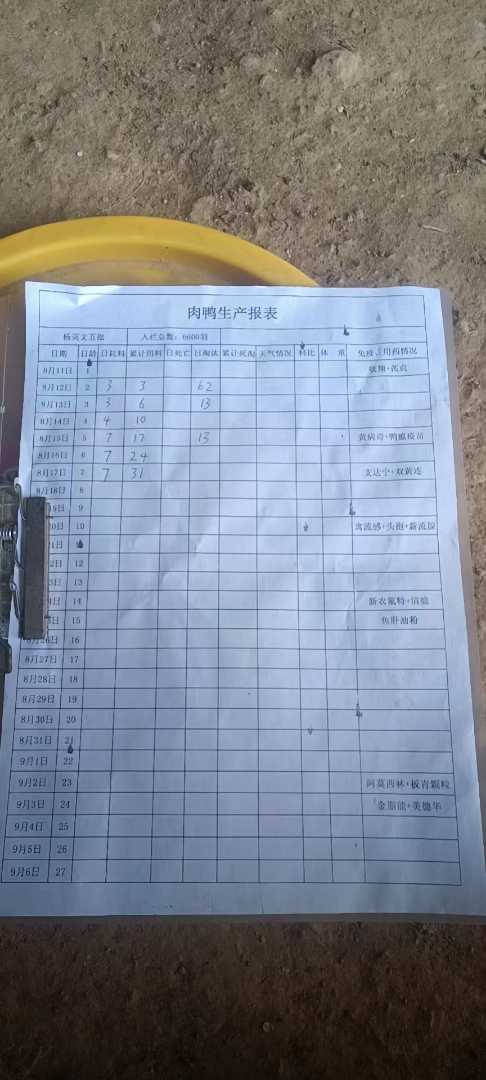 肉鸭生产报表
杨英文五批 入栏总数：6600羽
日期 日龄 日耗料 累计用料 日死亡 日淘汰 累计死淘 天气情况 料比 体 重 免疫 用药情况
8月11日 1
8月12日 2 3 3 62
8月13日 3 3 6 13
8月14日 4 4 10
8月15日 5 7 17 13 黄病毒+鸭瘟疫苗
8月16日 6 7 24
8月17日 7 7 31 支达宁+双黄连
8月18日 8
9日 9
0日 10 禽流感+头孢+新流腺
1日
2日 12
3日 13
日 14
日 15 鱼肝油粉
8月26日 16
8月27日 17
8月28日 18
8月29日 19
8月30日 20
8月31日 21
9月1日 22
9月2日 23 阿莫西林+板青颗粒
9月3日 24 金脂能+美德华
9月4日 25
9月5日 26
9月6日 27